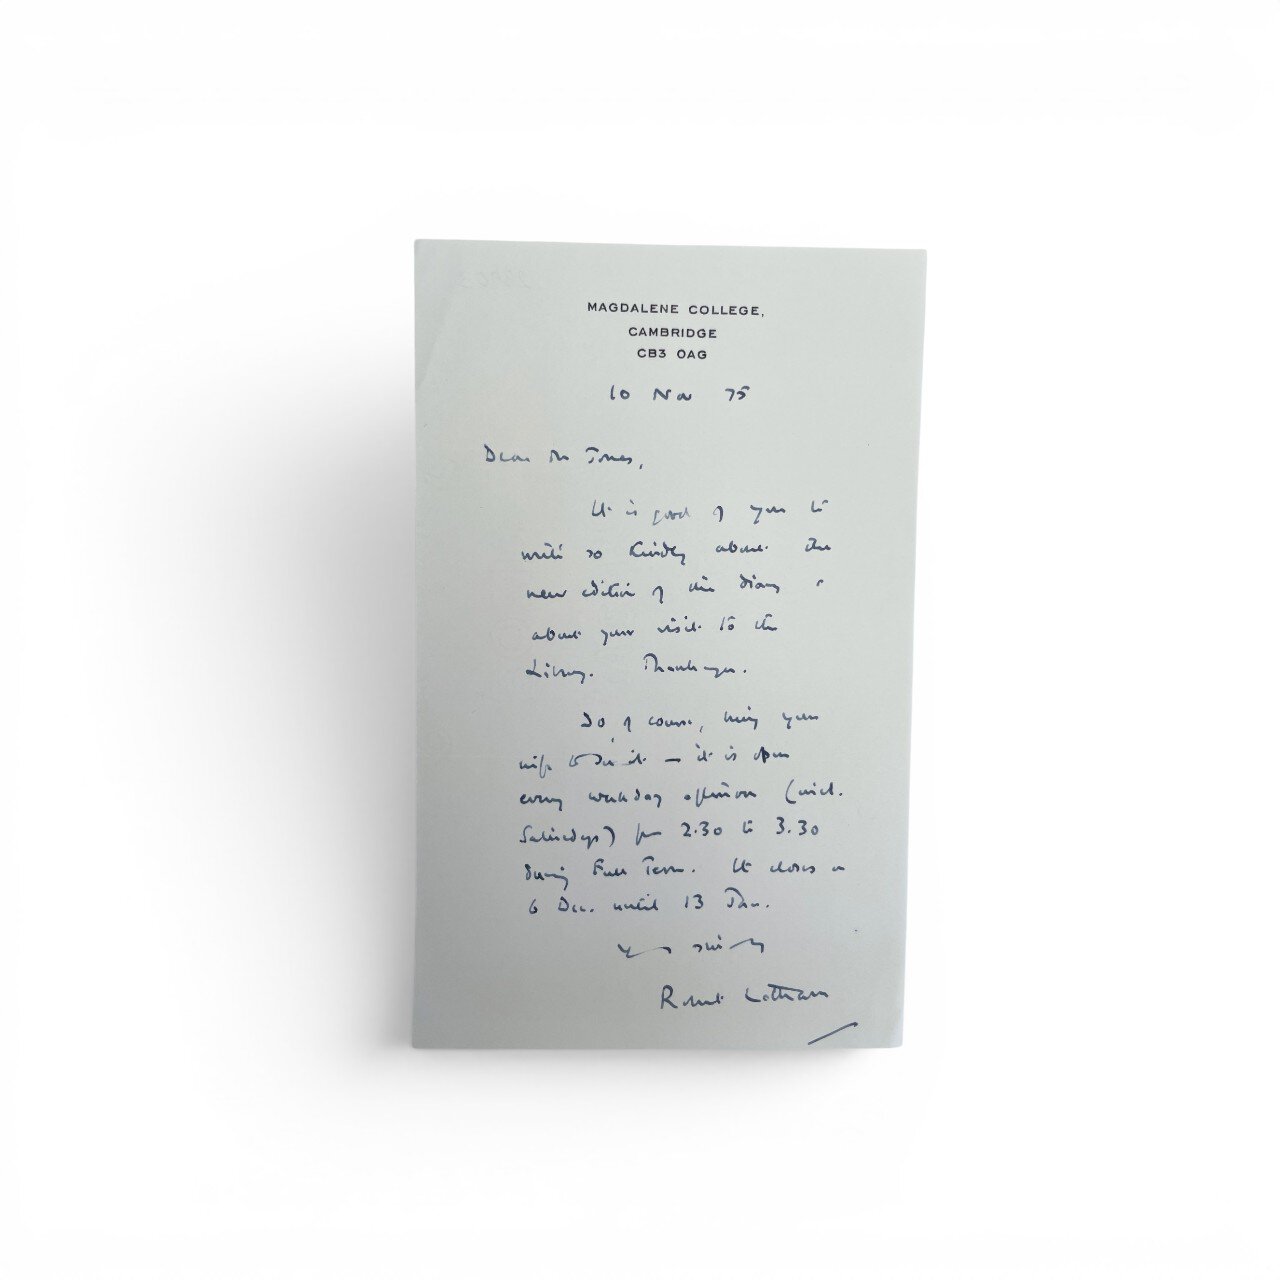 MAGDALENE COLLEGE,
CAMBRIDGE
CB3 0AG
10 Nov 75
Dear Mr Jones,
It is good of you to
write so kindly about the
new edition of the Diary &
about your visit to the
Library. Thank you.
Do, of course, bring your
wife to see it – it is open
every weekday afternoon (incl.
Saturdays) from 2.30 to 3.30
during Full Term. It closes on
6 Dec. until 13 Jan.
Yours sincerely
Robert Latham